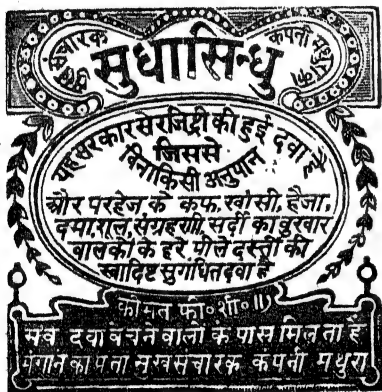 सुख संचारक
कंपनी मथुरा का
सुधासिन्धु
यह सरकार से रजिष्ट्री की हुई दवा है
जिससे
बिना किसी अनुपान
और परहेज के कफ, खांसी, हैजा,
दमा, शूल, संग्रहणी, सर्दी का बुखार
बालकों के हरे पीले दस्तों की
स्वादिष्ट सुगंधित दवा है
कीमत फी॰ शी॰ ॥)
सब दवा बेचने वालों के पास मिलता है
मंगाने का पता सुख संचारक कंपनी मथुरा